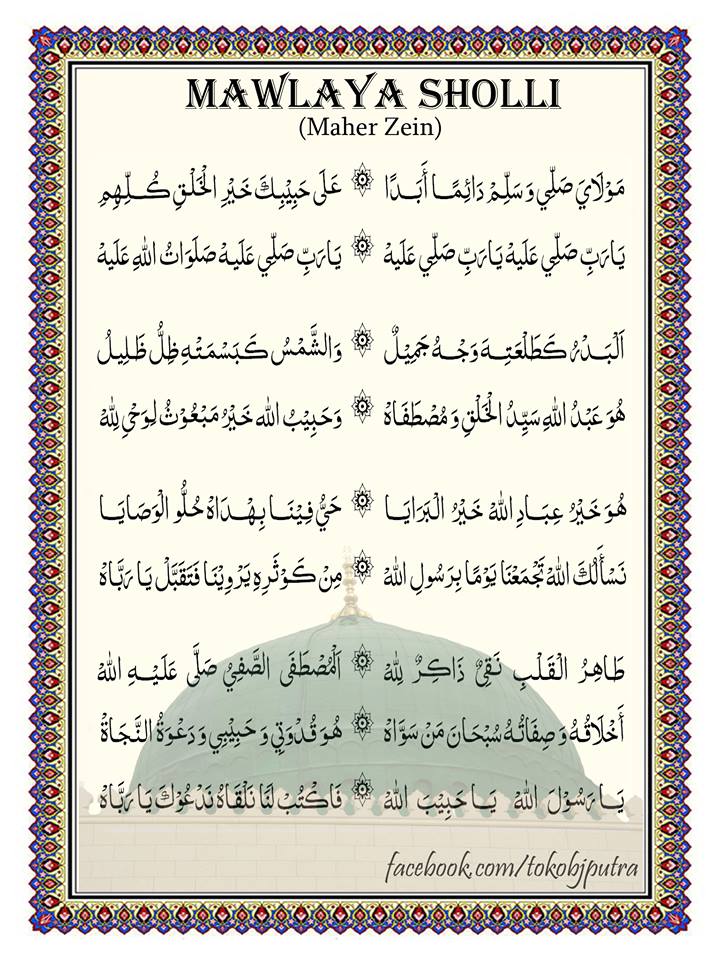 MAWLAYA SHOLLI
(Maher Zein)
مَوْلَايَ صَلِّي وَسَلِّمْ دَائِمًا أَبَدًا ۞ عَلَى حَبِيْبِكَ خَيْرِ الْخَلْقِ كُلِّهِمِ
يَارَبِّ صَلِّي عَلَيهْ يَارَبِّ صَلِّي عَلَيهْ ۞ يَارَبِّ صَلِّي عَلَيهْ صَلَوَاتُ اللهِ عَلَيهْ
اَلْبَدْرُ كَطَلْعَتِهِ وَجْهُ جَمِيْلٌ ۞ وَالشَّمْسُ كَبَسْمَتْهِ ظِلُّ ظَلِيلُ
هُوَ عَبْدُ اللهِ سَيِّدُ الْخَلْقِ وَمُصْطَفَاهْ ۞ وَحَبِيْبُ الله خَيْرُ مَبْعُوْثُ لِوَحْيِ لِلهْ
هُوَ خَيْرُ عِبَادِ اللهْ خَيْرُ الْبَرَايَا ۞ حَيُّ فِيْنَا بِهْدَاهْ حُلُّو الْوَصَايَا
نَسْأَلُكَ اللهْ تَجْمَعْنَا يَوْمًا بِرَسُولِ اللهْ ۞ مِنْ كَوْثَرِهِ يَرْوِيْنَا فَتَقَبَّلْ يَا رَبَّاهْ
طَاهِرُ الْقَلْبِ نَقِيٌّ ذَاكِرٌ لِلهْ ۞ اَلْمُصْطَفَى الصَّفِيُّ صَلَّى عَلَيْهِ اللهْ
أَخْلَاقُهُ وَصِفَاتُهُ سُبْحَانَ مَنْ سَوَّاهْ ۞ هُوَ قُدْوَتِي وَحَبِيْبِي وَدَعْوَةُ النَّجَاةْ
يَا رَسُوْلَ اللهْ يَا حَبِيْبَ اللهْ ۞ فَاكْتُبْ لَنَا نَلْقَاهْ نَدْعُوْكَ يَا رَبَّاهْ
facebook.com/tokobjputra